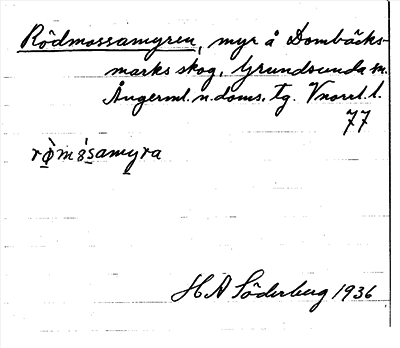 Rödmossamyren, myr å Dombäcks-
marks skog, Grundsunda sn.
Ångerml. n. doms. Tg. Vnorrl. l.
77
rø̀mósamyra
H A Söderberg 1936